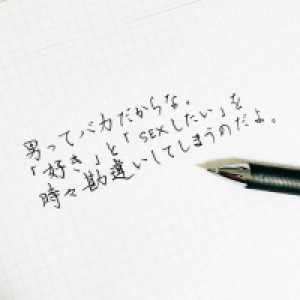 男ってバカだからな。
「好き」と「SEXしたい」を
時々勘違いしてしまうのだよ。